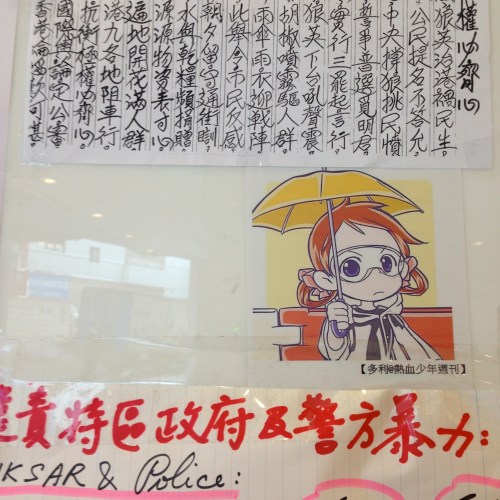 權必齊心
狼英治港禍民生。
公民提名不答允，
中央撐狼挑民憤
誓爭普選覓明君。
寧行三罷起言行，
狼英下台吼聲震。
胡椒噴霧驅人群。
雨傘雨衣迎戰陣
此舉令市民反感
朝夕留守通街瞓。
水與乾糧頻捐贈
源源物資表寸心
遍地開花滿人群
港九各地阻車行。
抗衡極權必齊心。
國際輿論定公審
香港
【多利@熱血少年週刊】
責特區政府及警方暴力:
KSAR & Police: